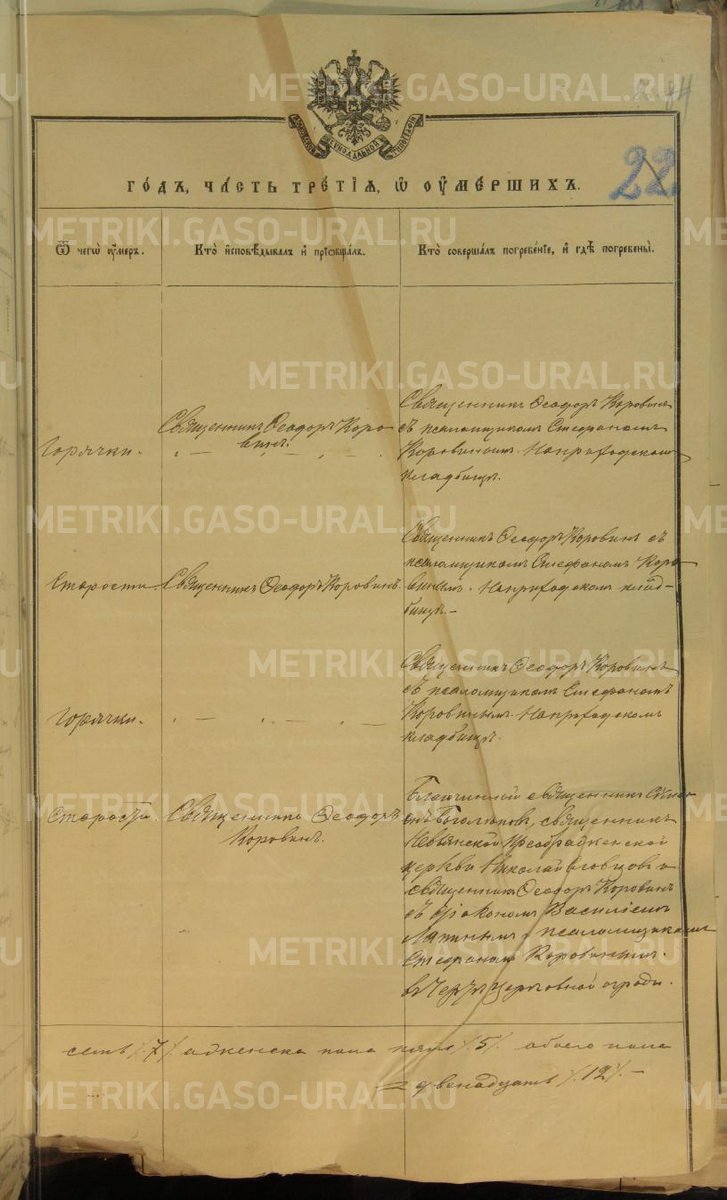 44
22
ГОДЪ, ЧАСТЬ ТРЕТІЯ, Ѿ ОУМЕРШИХЪ.
Ѿ чегѡ оумеръ.
Кто исповѣдывалъ и пріобщалъ.
Кто совершалъ погребеніе, и гдѣ погребены.
Горячки.
Священникъ Ѳеодоръ Коро-
винъ.
Священникъ Ѳеодоръ Коровинъ
съ псаломщикомъ Стефаномъ
Коровинымъ. На приходскомъ
кладбищѣ.
Старости
Священникъ Ѳеодоръ Коровинъ.
Священникъ Ѳеодоръ Коровинъ съ
псаломщикомъ Стефаномъ Коро-
винымъ. На приходскомъ клад-
бищѣ.-
Горячки.
Священникъ Ѳеодоръ Коровинъ
съ псаломщикомъ Стефаномъ
Коровинымъ. На приходскомъ
кладбищѣ.
Старости.
Священникъ Ѳеодоръ
Коровинъ.
Благочинный священникъ
священникъ
Невьянской Преображенской
церкви Николай и
священникъ Ѳеодоръ Коровинъ
съ діакономъ Василіемъ
и псаломщикомъ
Стефаномъ Коровинымъ.
церковной оградѣ.
семь /7/ а женска пола пять /5/. обоего пола
= двѣнадцать /12/. -
METRIKI.GASO-URAL.RU